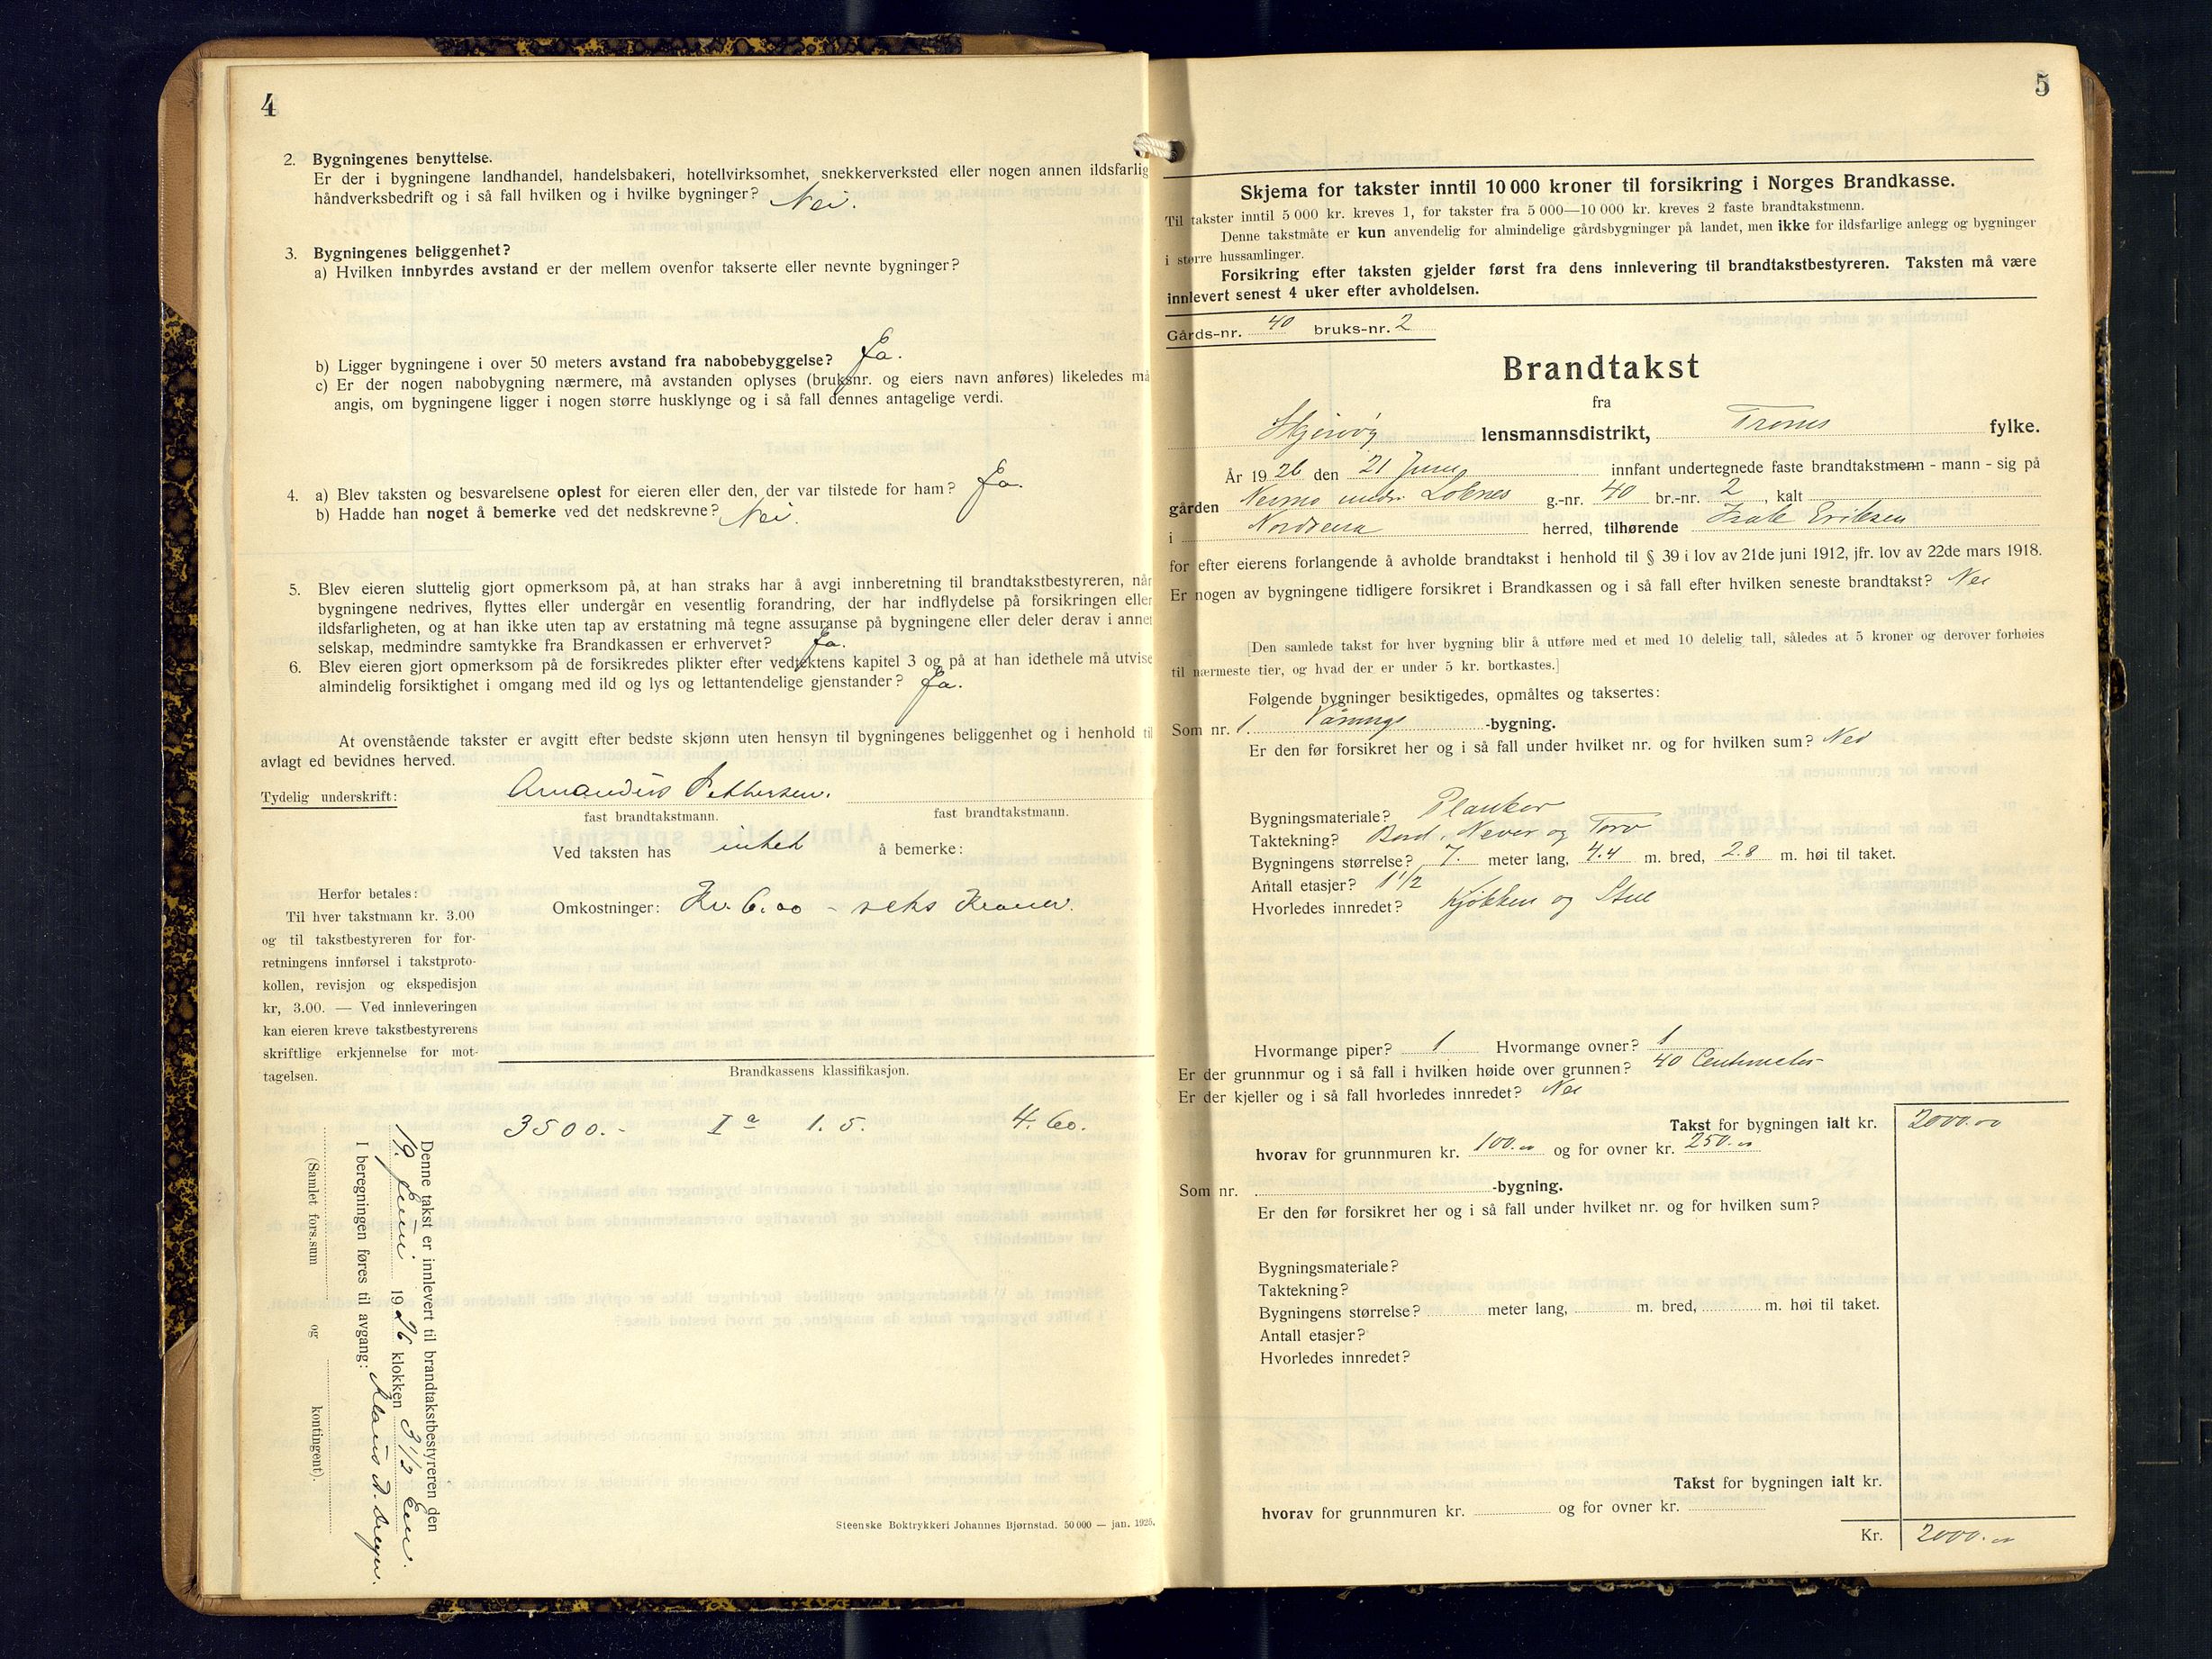 4
2. Bygningenes benyttelse.
Er der i bygningene landhandel, handelsbakeri, hotellvirksomhet, snekkerverksted eller nogen annen ildsfarlig
håndverksbedrift og i så fall hvilken og i hvilke bygninger? Nei.
3. Bygningenes beliggenhet?
a) Hvilken innbyrdes avstand er der mellem ovenfor takserte eller nevnte bygninger?
b) Ligger bygningene i over 50 meters avstand fra nabobebyggelse? Ja.
c) Er der nogen nabobygning nærmere, må avstanden oplyses (bruksnr. og eiers navn anføres) likeledes må
angis, om bygningene ligger i nogen større husklynge og i så fall dennes antagelige verdi.
4. a) Blev taksten og besvarelsene oplest for eieren eller den, der var tilstede for ham? Ja.
b) Hadde han noget å bemerke ved det nedskrevne? Nei.
5. Blev eieren sluttelig gjort opmerksom på, at han straks har å avgi innberetning til brandtakstbestyreren, når
bygningene nedrives, flyttes eller undergår en vesentlig forandring, der har indflydelse på forsikringen eller
ildsfarligheten, og at han ikke uten tap av erstatning må tegne assuranse på bygningene eller deler derav i annet
selskap, medmindre samtykke fra Brandkassen er erhvervet? Ja.
6. Blev eieren gjort opmerksom på de forsikredes plikter efter vedtektens kapitel 3 og på at han idethele må utvise
almindelig forsiktighet i omgang med ild og lys og lettantendelige gjenstander? Ja.
At ovenstående takster er avgitt efter bedste skjønn uten hensyn til bygningenes beliggenhet og i henhold til
avlagt ed bevidnes herved.
Tydelig underskrift: Amandus Pettersen.
fast brandtakstmann. fast brandtakstmann.
Ved taksten has intet å bemerke:
Omkostninger: Kr. 6.00 - seks Kroner.
Herfor betales:
Til hver takstmann kr. 3.00
og til takstbestyreren for for-
retningens innførsel i takstproto-
kollen, revisjon og ekspedisjon
kr, 3.00. — Ved innleveringen
kan eieren kreve takstbestyrerens
skriftlige erkjennelse for mot-
tagelsen.
Brandkassens klassifikasjon.
3500.- I a 1. 5. 4.60.
Denne takst er innlevert til brandtakstbestyreren den
19. Juni 1926 klokken 3 1/2 Em.
I beregningen føres til avgang: Klaus A.
(Samlet fors.sum og kontingent).
Steenske Boktrykkeri Johannes Bjørnstad. 50 000 — jan. 1925.
5
Skjema for takster inntil 10 000 kroner til forsikring i Norges Brandkasse.
Til takster inntil 5 000 kr. kreves 1, for takster fra 5 000—10 000 kr. kreves 2 faste brandtakstmenn.
Denne takstmåte er kun anvendelig for almindelige gårdsbygninger på landet, men ikke for ildsfarlige anlegg og bygninger
i større hussamlinger.
Forsikring efter taksten gjelder først fra dens innlevering til brandtakstbestyreren. Taksten må være
innlevert senest 4 uker efter avholdelsen.
Gårds-nr. 40 bruks-nr. 2
Brandtakst
fra
Skjervøy lensmannsdistrikt, Troms fylke.
År 1926 den 21 Juni innfant undertegnede faste brandtakstmenn - mann - sig på
gården g.-nr. 40 br.-nr. 2, kalt
i Nordreisa herred, tilhørende Isak Eriksen
for efter eierens forlangende å avholde brandtakst i henhold til § 39 i lov av 21de juni 1912, jfr. lov av 22de mars 1918.
Er nogen av bygningene tidligere forsikret i Brandkassen og i så fall efter hvilken seneste brandtakst? Nei
[Den samlede takst for hver bygning blir å utføre med et med 10 delelig tall, således at 5 kroner og derover forhøies
til nærmeste tier, og hvad der er under 5 kr. bortkastes.]
Følgende bygninger besiktigedes, opmåltes og taksertes:
Som nr. 1. Vånings -bygning.
Er den før forsikret her og i så fall under hvilket nr. og for hvilken sum? Nei
Bygningsmateriale? Planker
Taktekning? Bord, Never og Torv
Bygningens størrelse? 7. meter lang, 4.4 m. bred, 2.8 m. høi til taket.
Antall etasjer? 1 1/2
Hvorledes innredet? Kjøkken og Stue
Hvormange piper? 1 Hvormange ovner? 1
Er der grunnmur og i så fall i hvilken høide over grunnen? 40 Centimeter
Er der kjeller og i så fall hvorledes innredet? Nei
Takst for bygningen ialt kr. 2000.00
hvorav for grunnmuren kr. 100.00 og for ovner kr. 250.00
Som nr. -bygning.
Er den før forsikret her og i så fall under hvilket nr. og for hvilken sum?
Bygningsmateriale?
Taktekning?
Bygningens størrelse? meter lang, m. bred, m. høi til taket.
Antall etasjer?
Hvorledes innredet?
Takst for bygningen ialt kr.
hvorav for grunnmuren kr. og for ovner kr.
Kr. 2000.00